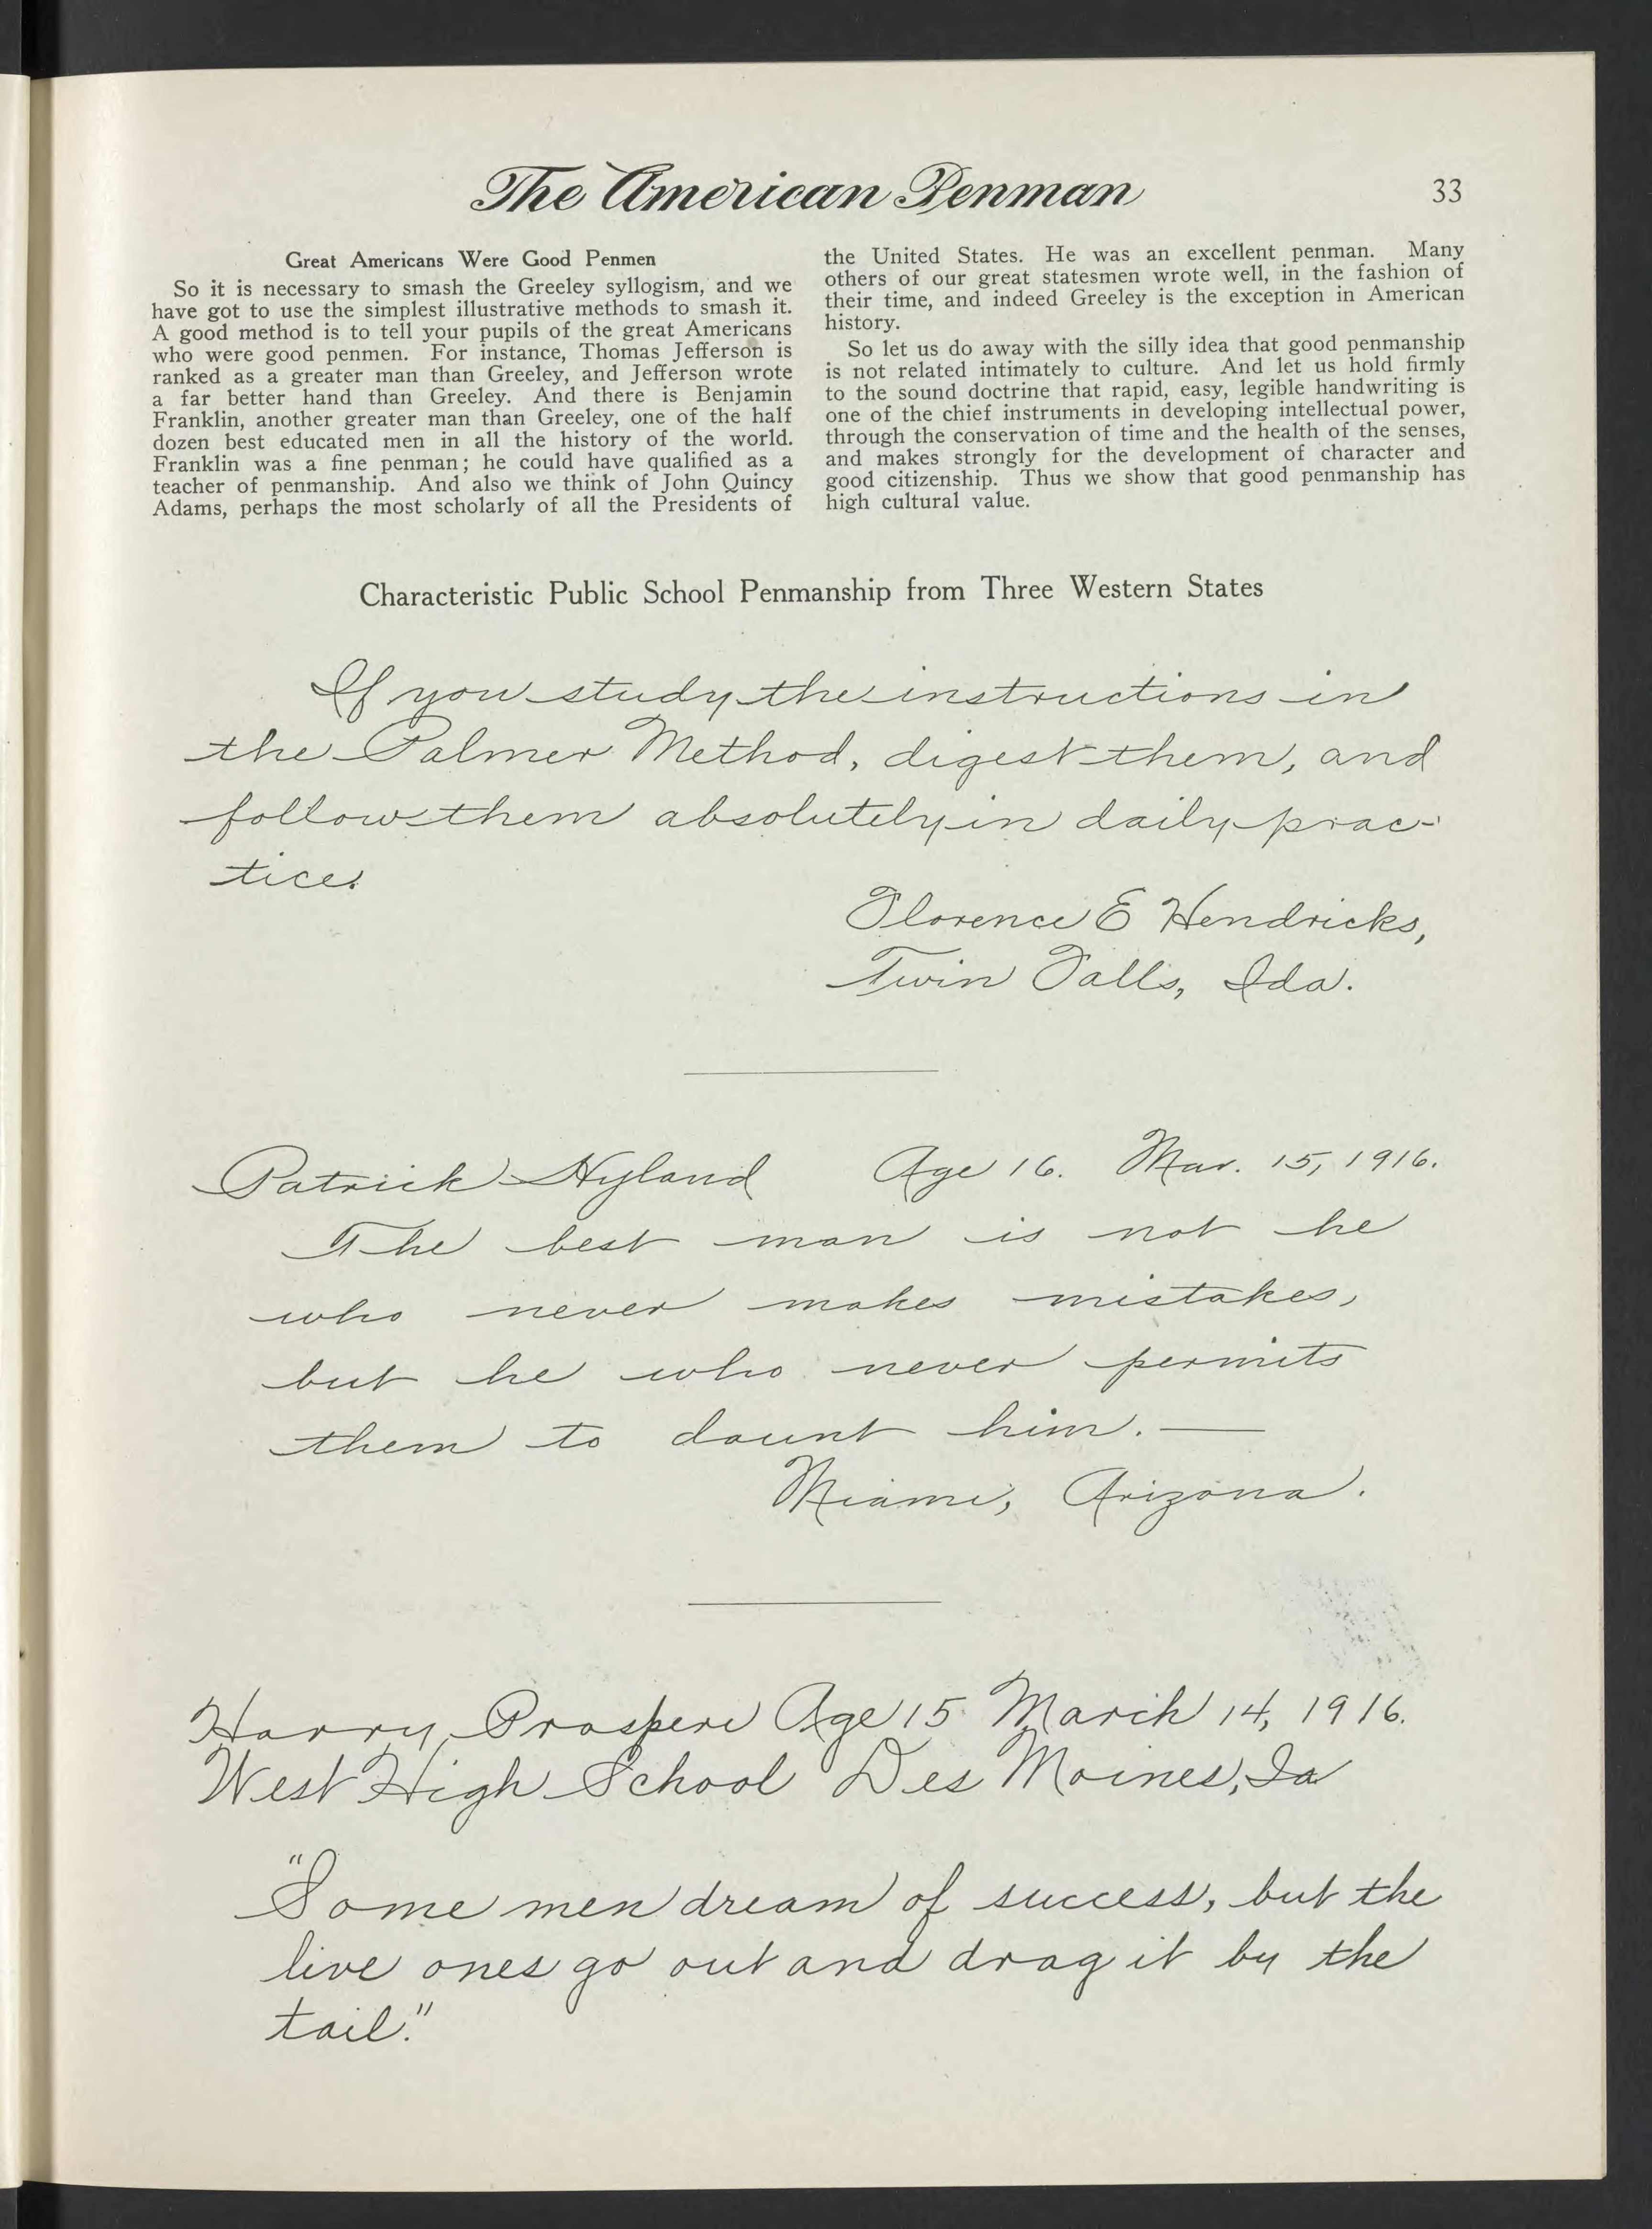 The American Penman
33
Great Americans Were Good Penmen
So it is necessary to smash the Greeley syllogism, and we
have got to use the simplest illustrative methods to smash it.
A good method is to tell your pupils of the great Americans
who were good penmen. For instance, Thomas Jefferson is
ranked as a greater man than Greeley, and Jefferson wrote
a far better hand than Greeley. And there is Benjamin
Franklin, another greater man than Greeley, one of the half
dozen best educated men in all the history of the world.
Franklin was a fine penman; he could have qualified as a
teacher of penmanship. And also we think of John Quincy
Adams, perhaps the most scholarly of all the Presidents of
the United States. He was an excellent penman. Many
others of our great statesmen wrote well, in the fashion of
their time, and indeed Greeley is the exception in American
history.
So let us do away with the silly idea that good penmanship
is not related intimately to culture. And let us hold firmly
to the sound doctrine that rapid, easy, legible handwriting is
one of the chief instruments in developing intellectual power,
through the conservation of time and the health of the senses,
and makes strongly for the development of character and
good citizenship. Thus we show that good penmanship has
high cultural value.
Characteristic Public School Penmanship from Three Western States
If you study the instructions in
the Palmer Method, digest them, and
follow them absolutely in daily prac-
tice.
Florence E Hendricks,
Twin Falls, Ida.
Patrick Hyland Age 16. Mar. 15, 1916.
The best man is not he
who never makes mistakes,
but he who never permits
them to daunt him. —
Miami, Arizona.
Harry Prosperi Age 15 March 14, 1916.
West High School Des Moines, Ia
"Some men dream of success, but the
live ones go out and drag it by the
tail."